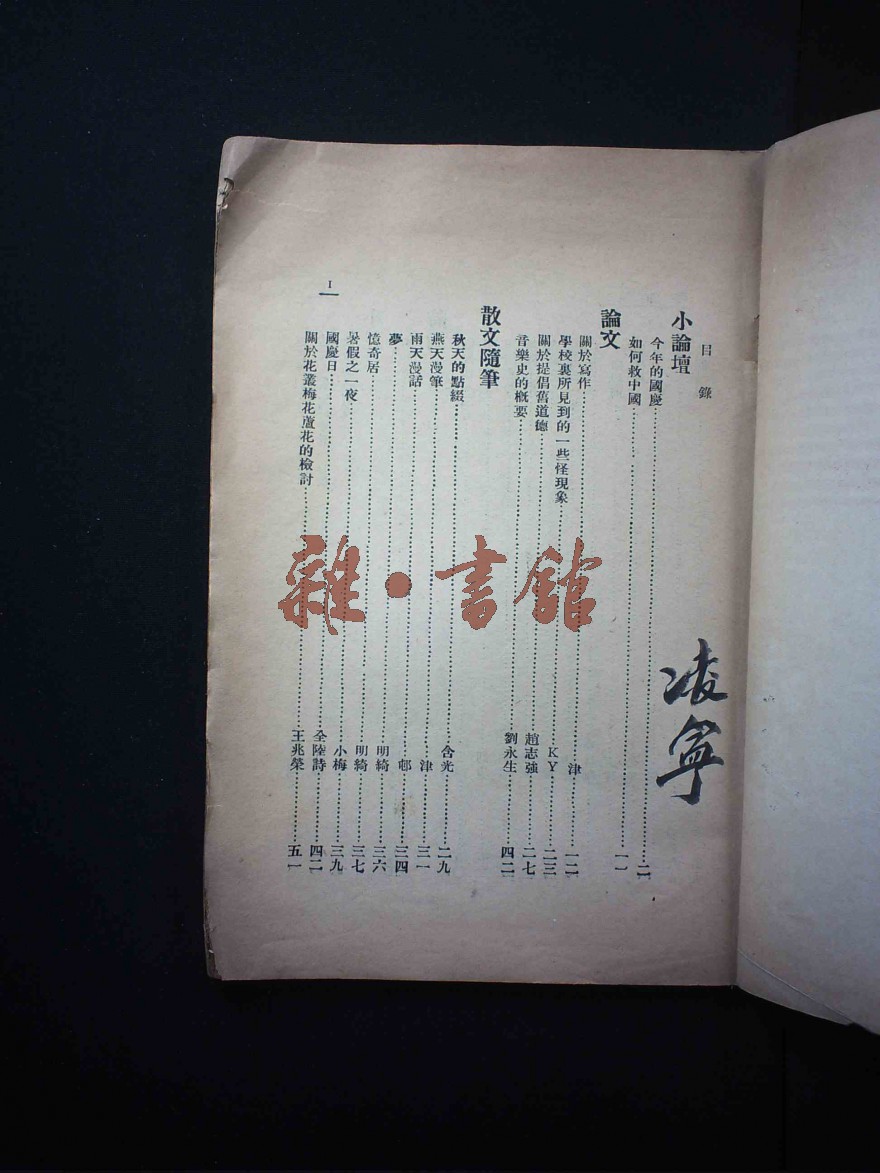 目錄
小論壇
今年的國慶……二
如何救中國……一一
論文
關於寫作……津……一二
學校裏所見到的一些怪現象……KY……二三
關於提倡舊道德……趙志強……二七
音樂史的概要……劉永生……四二
散文隨筆
秋天的點綴……含光……二九
燕天漫筆……津……三一
雨天漫話……邨……三四
夢……明綺……三六
憶奇居……明綺……三七
暑假之一夜……小梅……三九
國慶日……全陸詩……四二
關於花叢梅花蘆花的檢討……王兆榮……五一
I
凌寧
雜·書館